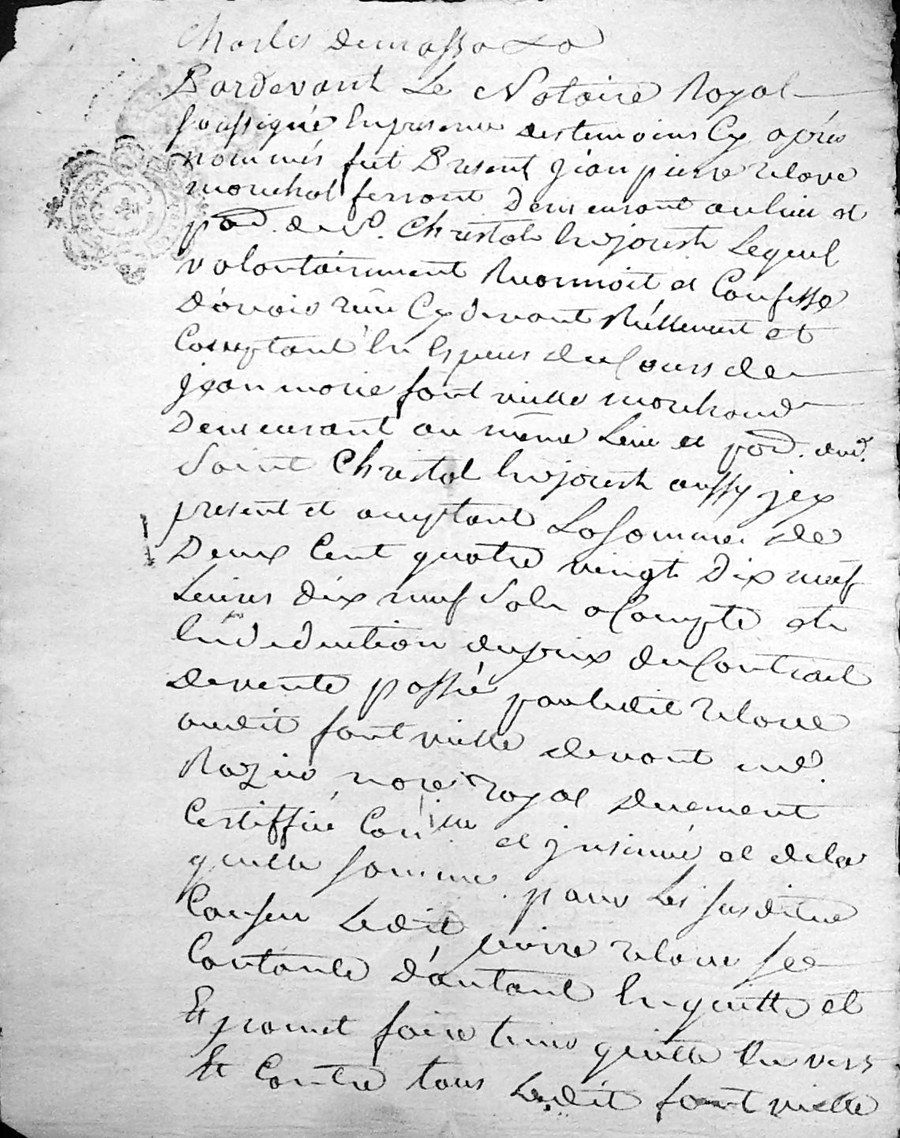 Charles
Pardevant Le Notaire Royal
soussigné En presence des temoins Cy après
nommés fut Present jean pierre relave
marechal ferrant Demeurant au lieu et
par. de St. Christol En jarest Lequel
volontairement Reconnoit et Confesse
D'avoir reçu Cy devant Réellement et
Comptant En Especes du Cours de
jean marie font vielle marchand
Demeurant au même Lieu et par. dud.
Saint Christol En jarest aussy jcy
present et acceptant La somme de
Deux Cent quatre vingt Dix neuf
Livres dix neuf Sols a Compte et
En deduction du prix du Contrat
de vente passé par ledit relave
audit font vielle devant md.
nore royal duement
Certiffié et jnsinué et de la
quelle somme pour Les susditte
Causes Ledit pierre relave se
Contante D'autant En quitte et
Et promet faire tenir quitte Envers
Et Contre tous Ledit font vielle